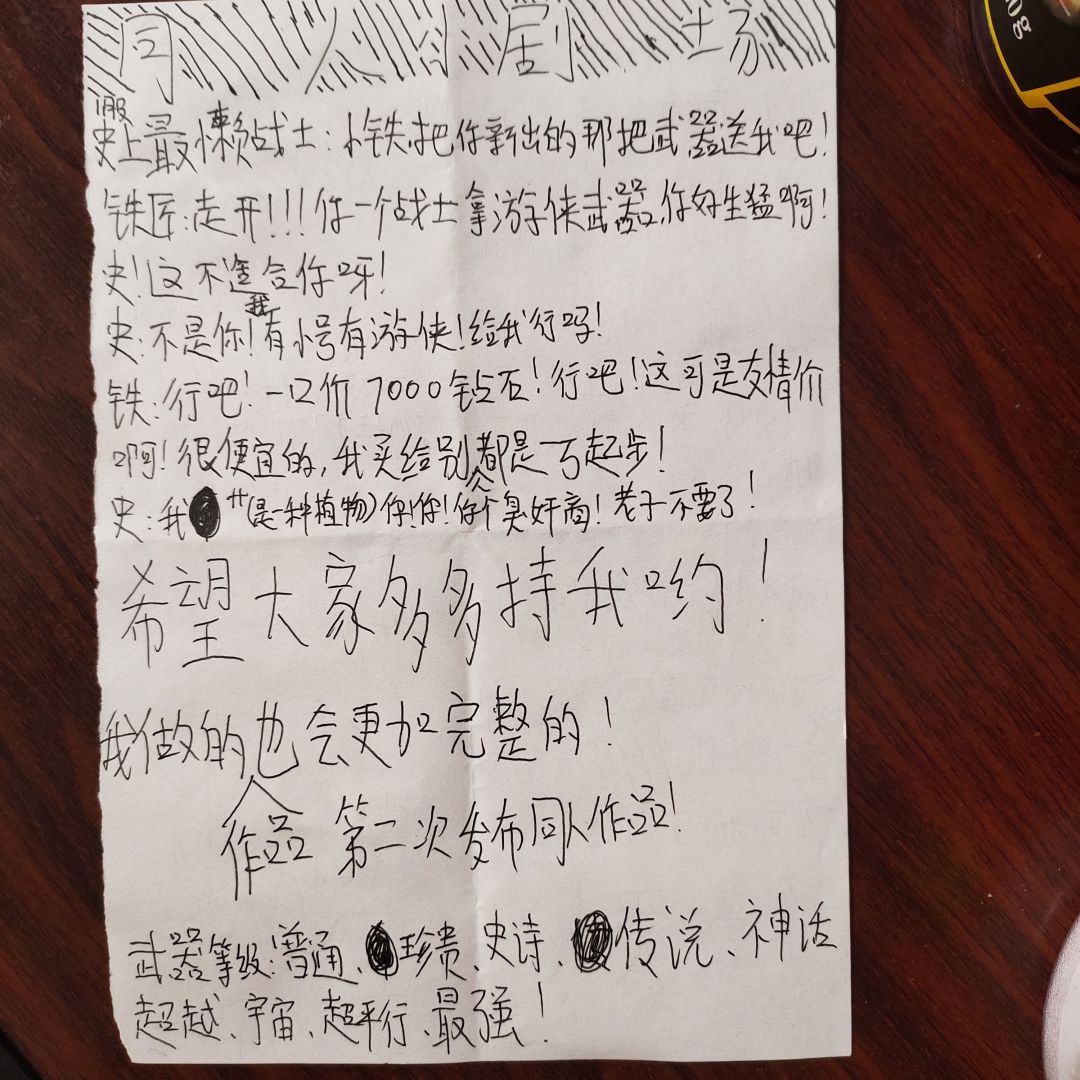 同人小剧场
1服
史上最懒战士:小铁,把你新出的那把武器送我吧!
铁匠:走开!!!你一个战士拿游侠武器,你好生猛啊!
史!这不适合你呀!
我
史:不是你!有小号有游侠!给我行吗!
铁:行吧!一口价7000钻石!行吧!这可是友情价
啊!很便宜的,我买给别人都是万起步!
史:我艹(是一种植物)你!你!你个臭奸商!老子不要了!
希望大家多多持我哟!
我做的也会更加完整的!
作品 第二次发布同人作品!
武器等级:普通、珍贵、史诗、传说、神话
超越、宇宙、超平行、最强!
0g